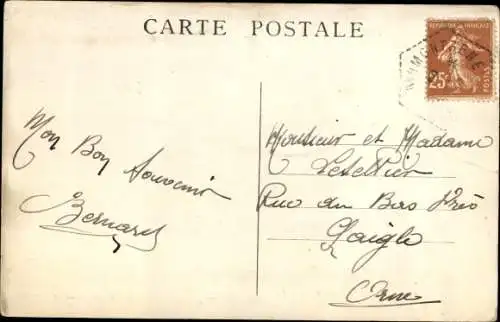 CARTE POSTALE
REPUBLIQUE FRANÇAISE
25c
POSTES
Mon Bon Souvenir
Bernard
Monsieur et Madame
Letellier
Rue du Bas Prés
Laigle
Orne